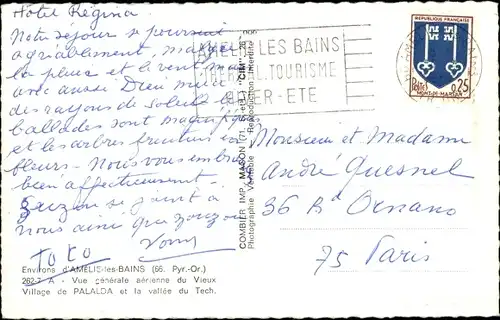 Hôtel Régina
Notre séjour se poursuit
agréablement, malgré
la pluie et le vent mais
avec aussi Dieu merci
des rayons de soleil. Les
ballades sont magnifiques
et les arbres fruitiers en
fleurs - Nous vous embrassons
bien affectueusement.
Suzon se joint à
nous ainsi que
Toto
AMÉLIE LES BAINS
THERMAL-TOURISME
HIVER-ÉTÉ
REPUBLIQUE FRANÇAISE
POSTES 0,25
MONT-DE-MARSAN
COMBIER IMP. MACON (71 S.-et-L.) "CIM"
Photographie Véritable - Reproduction Interdite
Monsieur et Madame
André Quesnel
36 Bd Ornano
75 Paris
Environs d'AMÉLIE-les-BAINS (66. Pyr.-Or.)
262-7 A - Vue générale aérienne du Vieux
Village de PALALDA et la vallée du Tech.